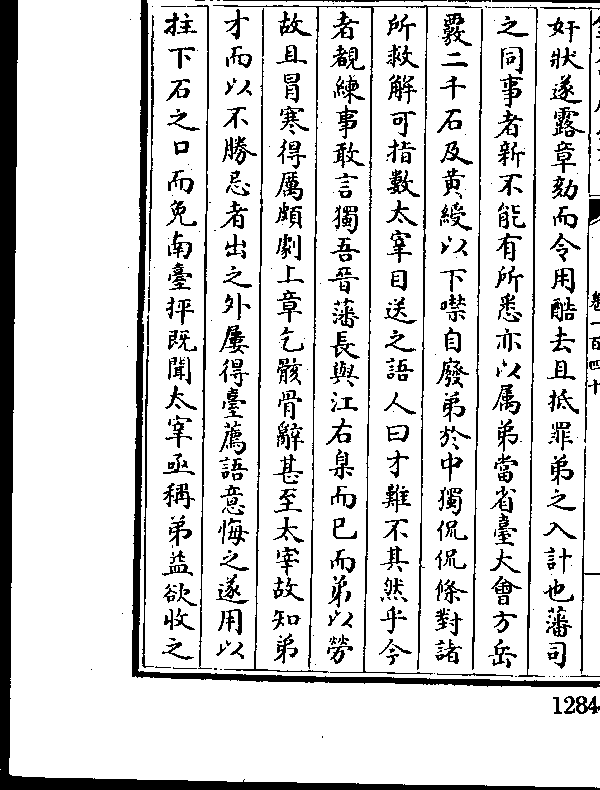 卷一百四十
奸狀遂露章劾而令用酷去且抵罪弟之入計也藩司
之同事者新不能有所悉亦以属弟當省臺大會方岳
覈二千石及黄綬以下噤自廢弟於中獨侃侃條對諸
所救解可指數太宰目送之語人曰才難不其然乎今
者覩練事敢言獨吾晉藩長與江右臬而已而弟以勞
故且冒寒得厲頗劇上章乞骸骨辭甚至太宰故知弟
才而以不勝忌者出之外屢得臺薦語意悔之遂用以
拄下石之口而免南臺抨既聞太宰亟稱弟益欲收之
1284